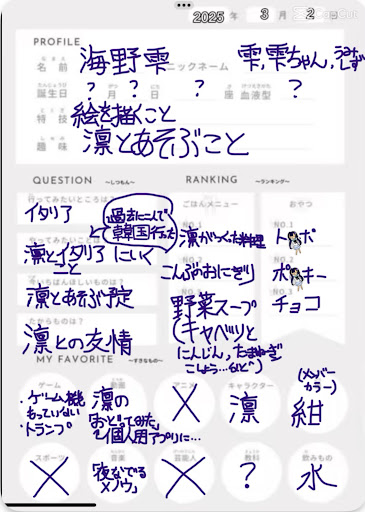 2025 年 3 月 2 日
PROFILE
名前 海野雫 ニックネーム 雫,雫ちゃん,うみしず
誕生日 ? 月 ? 日 ? 座 血液型 ?
特技 絵を描くこと
趣味 凛とあそぶこと
QUESTION ～しつもん～
RANKING ～ランキング～
行ってみたいところは?
イタリア
過去に二人で韓国行った
凛とイタリアにいくこと
凛とあそぶ予定
たからものは?
凛との友情
ごはんメニュー
NO.1 凛がつくった料理
こんぶのおにぎり
野菜スープ
(キャベツと
にんじん,たまねぎ
こしょう…など)
おやつ
チョコ
MY FAVORITE ～すきなもの～
ゲーム
・ゲーム機もっていない
トランプ
動画
凛の「おどってみた」
アニメ
×
キャラクター
凛
(メンバーカラー)
紺
スポーツ
×
音楽
「夜なでるメノウ」
芸能人
×
教科
?
飲みもの
水